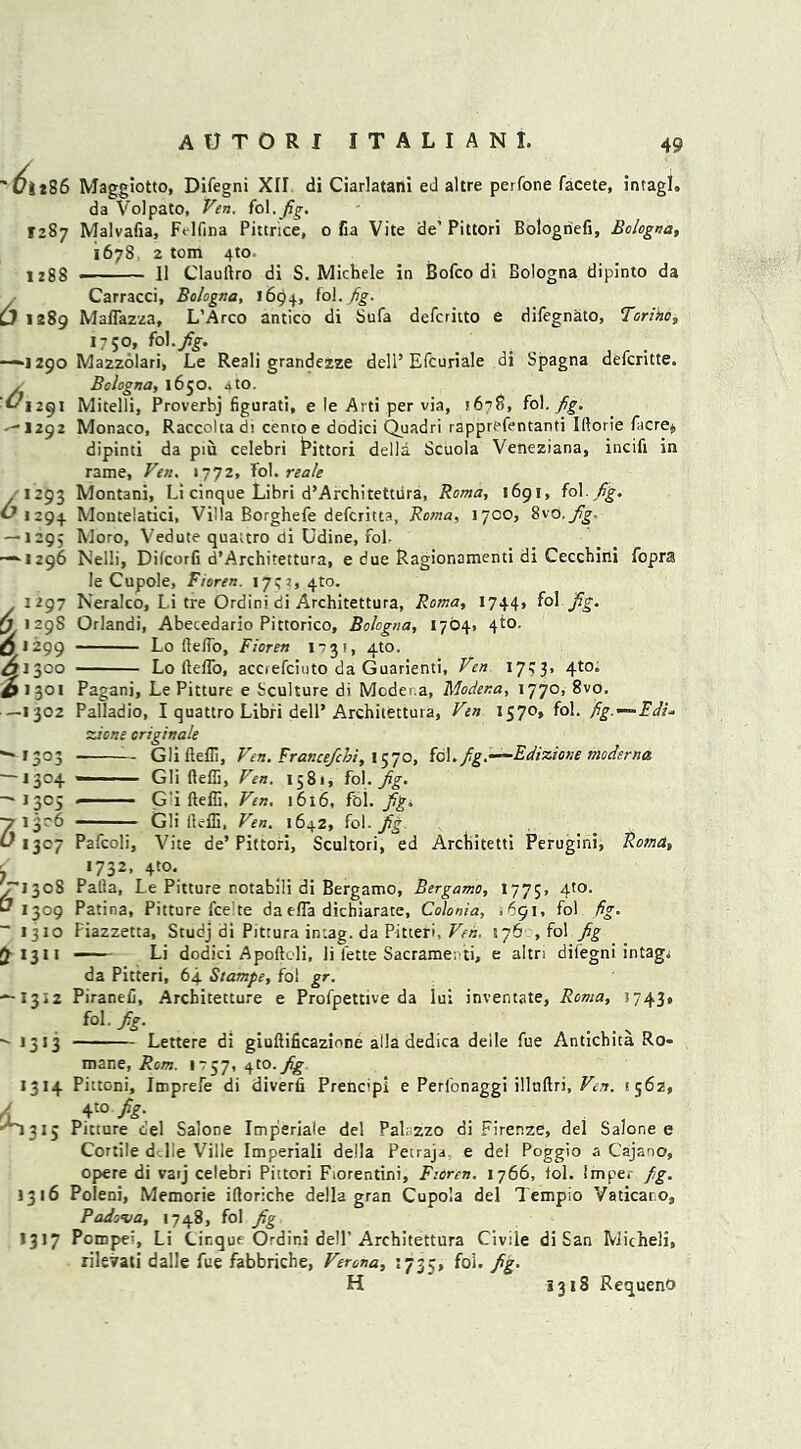 AUTORI ITALIANI. 49
1286 Maggiotto, Difegni XII di Ciarlatani ed altre perfone facete, intagl.
da Volpato, Ven. fol. fig.
1287 Malvafia, Felfina Pittrice, o fia Vite de' Pittori Bolognefi, Bologna,
1678 2 tom 4to.
1288 ——— Il Clauftro di S. Michele in Bofco di Bologna dipinto da
Carracci, Bologna, 1694, fol. fig.
1289 Maffazza, L'Arco antico di Sufa defcritto e difegnato, Torino,
1750, fol. fig.
1290 Mazzolari, Le Reali grandezze dell' Efcuriale di Spagna defcritte.
Bologna, 1650. 4to.
1291 Mitelli, Proverbj figurati, e le Arti per via, 1678, fol. fig.
1292 Monaco, Raccolta di cento e dodici Quadri rapprefentanti Iftorie facre,
dipinti da più celebri Pittori della Scuola Veneziana, incifi in
rame, Ven. 1772, fol. reale
1293 Montani, Li cinque Libri d'Architettura, Roma, 1691, fol. fig.
1294 Montelatici, Villa Borghefe defcritta, Roma, 1700, 8vo. fig.
1295 Moro, Vedute quattro di Udine, fol.
1296 Nelli, Difcorfi d'Architettura, e due Ragionamenti di Cecchini fopra
le Cupole, Fioren. 1753, 4to.
1297 Neralco, Li tre Ordini di Architettura, Roma, 1744, fol fig.
1298 Orlandi, Abecedario Pittorico, Bologna, 1704, 4to.
1299 ——— Lo fteffo, Fioren 1731, 4to.
1300 ——— Lo fteffo, accrefciuto da Guarienti, Ven 1753, 4to.
1301 Pagani, Le Pitture e Sculture di Modena, Modena, 1770, 8vo.
1302 Palladio, I quattro Libri dell' Architettura, Ven 1570, fol. fig.—Edi-
zione originale
1303 ——— Gli fteffi, Ven. Francefchi, 1570, fol. fig.—Edizione moderna
1304 ——— Gli fteffi, Ven. 1581, fol. fig.
1305 ——— Gli fteffi, Ven. 1616, fol. fig.
1306 ——— Gli fteffi, Ven. 1642, fol. fig
1307 Pafcoli, Vite de' Pittori, Scultori, ed Architetti Perugini, Roma,
1732, 4to.
1308 Pafta, Le Pitture notabili di Bergamo, Bergamo, 1775, 4to.
1309 Patina, Pitture fcelte da effa dichiarate, Colonia, 1691, fol fig.
1310 Piazzetta, Studj di Pittura intag. da Pitteri, Ven. 176 , fol fig
1311 —— Li dodici Apoftoli, li fette Sacramenti, e altri difegni intag.
da Pitteri, 64 Stampe, fol gr.
1312 Piranefi, Architetture e Profpettive da lui inventate, Roma, 1743,
fol. fig.
1313 ——— Lettere di giuftificazione alla dedica delle fue Antichità Ro-
mane, Rom. 1757, 4to. fig
1314 Pittoni, Imprefe di diverfi Prencipi e Perfonaggi illuftri, Ven. 1562,
4to fig.
1315 Pitture del Salone Imperiale del Palazzo di Firenze, del Salone e
Cortile delle Ville Imperiali della Petraja, e del Poggio a Cajano,
opere di varj celebri Pittori Fiorentini, Fioren. 1766, fol. imper fig.
1316 Poleni, Memorie iftoriche della gran Cupola del Tempio Vaticano,
Padova, 1748, fol fig
1317 Pompei, Li Cinque Ordini dell' Architettura Civile di San Micheli,
rilevati dalle fue fabbriche, Verona, 1735, fol. fig.
H 1318 Requeno